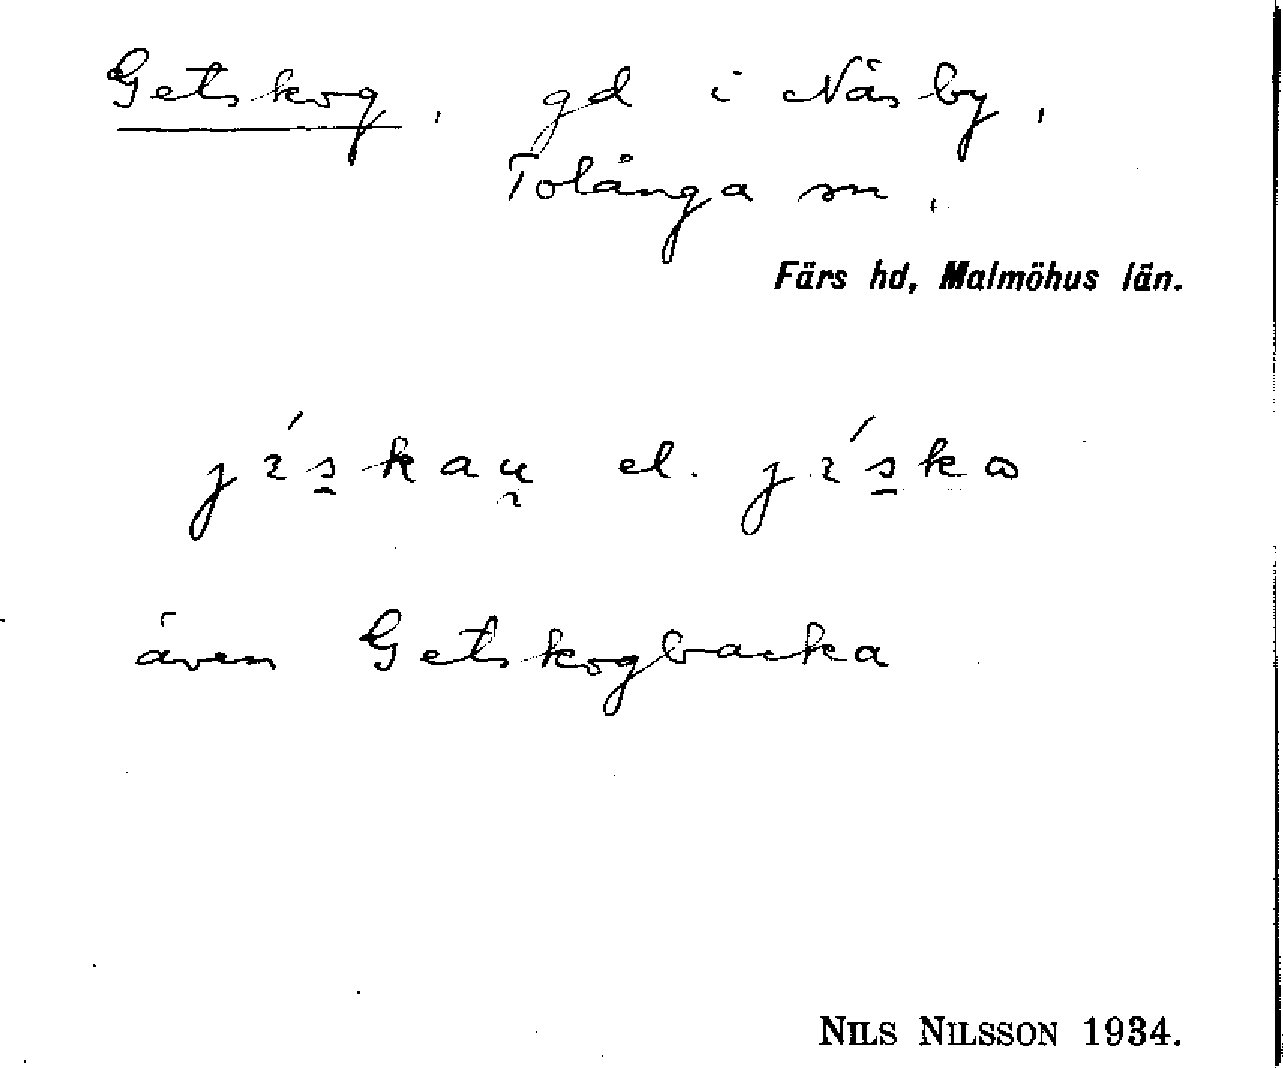 Getskog, gd i Näsby,
Tolånga sn,
Färs hd, Malmöhus län.
även Getskogbacka
NILS NILSSON 1934.